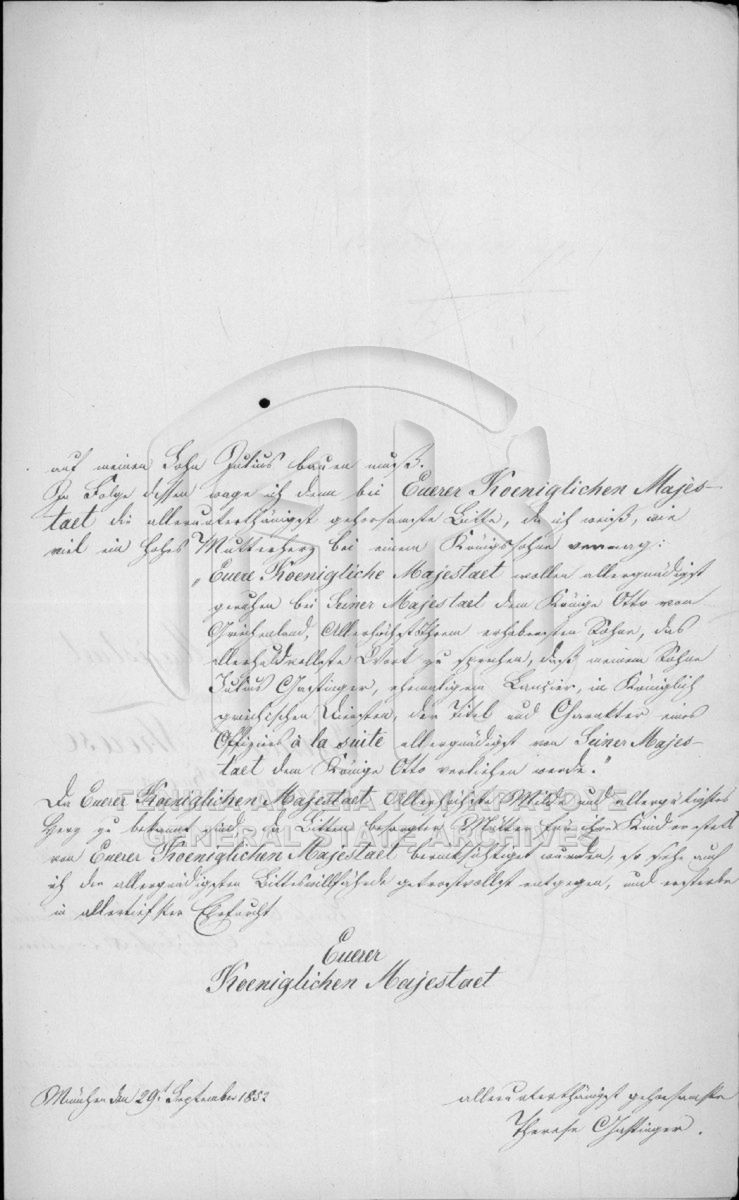 auf meinen Sohn Julius bauen muß.
In Folge dessen wage ich denn bei Euerer Koeniglichen Majes-
taet die allerunterthänigst gehorsamste Bitte, da ich weiß, wie
viel ein hohes Mutterherz bei einem Königssohne vermag:
„Euere Koenigliche Majestaet wollen allergnädigst
geruhen bei Seiner Majestaet dem Könige Otto von
Griechenland, Allerhöchst Ihrem erhabensten Sohne, das
allerhuldvollste Wort zu sprechen, daß meinem Sohne
Julius Gastinger, ehemaligem Lanzier, in Königlich
griechischen Diensten, der Titel und Charakter eines
Offiziers à la suite allergnädigst von Seiner Majes-
taet dem Könige Otto verliehen werde."
Da Euerer Koeniglichen Majestaet Allerhöchste Milde und allergütigstes
Herz zu bekannt sind, da Bitten besorgter Mütter für ihre Kinder stets
von Euerer Koeniglichen Majestaet berücksichtiget wurden, so sehe auch
ich der allergnädigsten Bitteswillfahrde getrostvollst entgegen, und ersterbe
in allertiefster Ehrfurcht
Euerer
Koeniglichen Majestaet
München den 29t September 1852
allerunterthänigst gehorsamste
Therese Gastinger.
ΓΕΝΙΚΑ ΑΡΧΕΙΑ ΤΟΥ ΚΡΑΤΟΥΣ
GENERAL STATE ARCHIVES